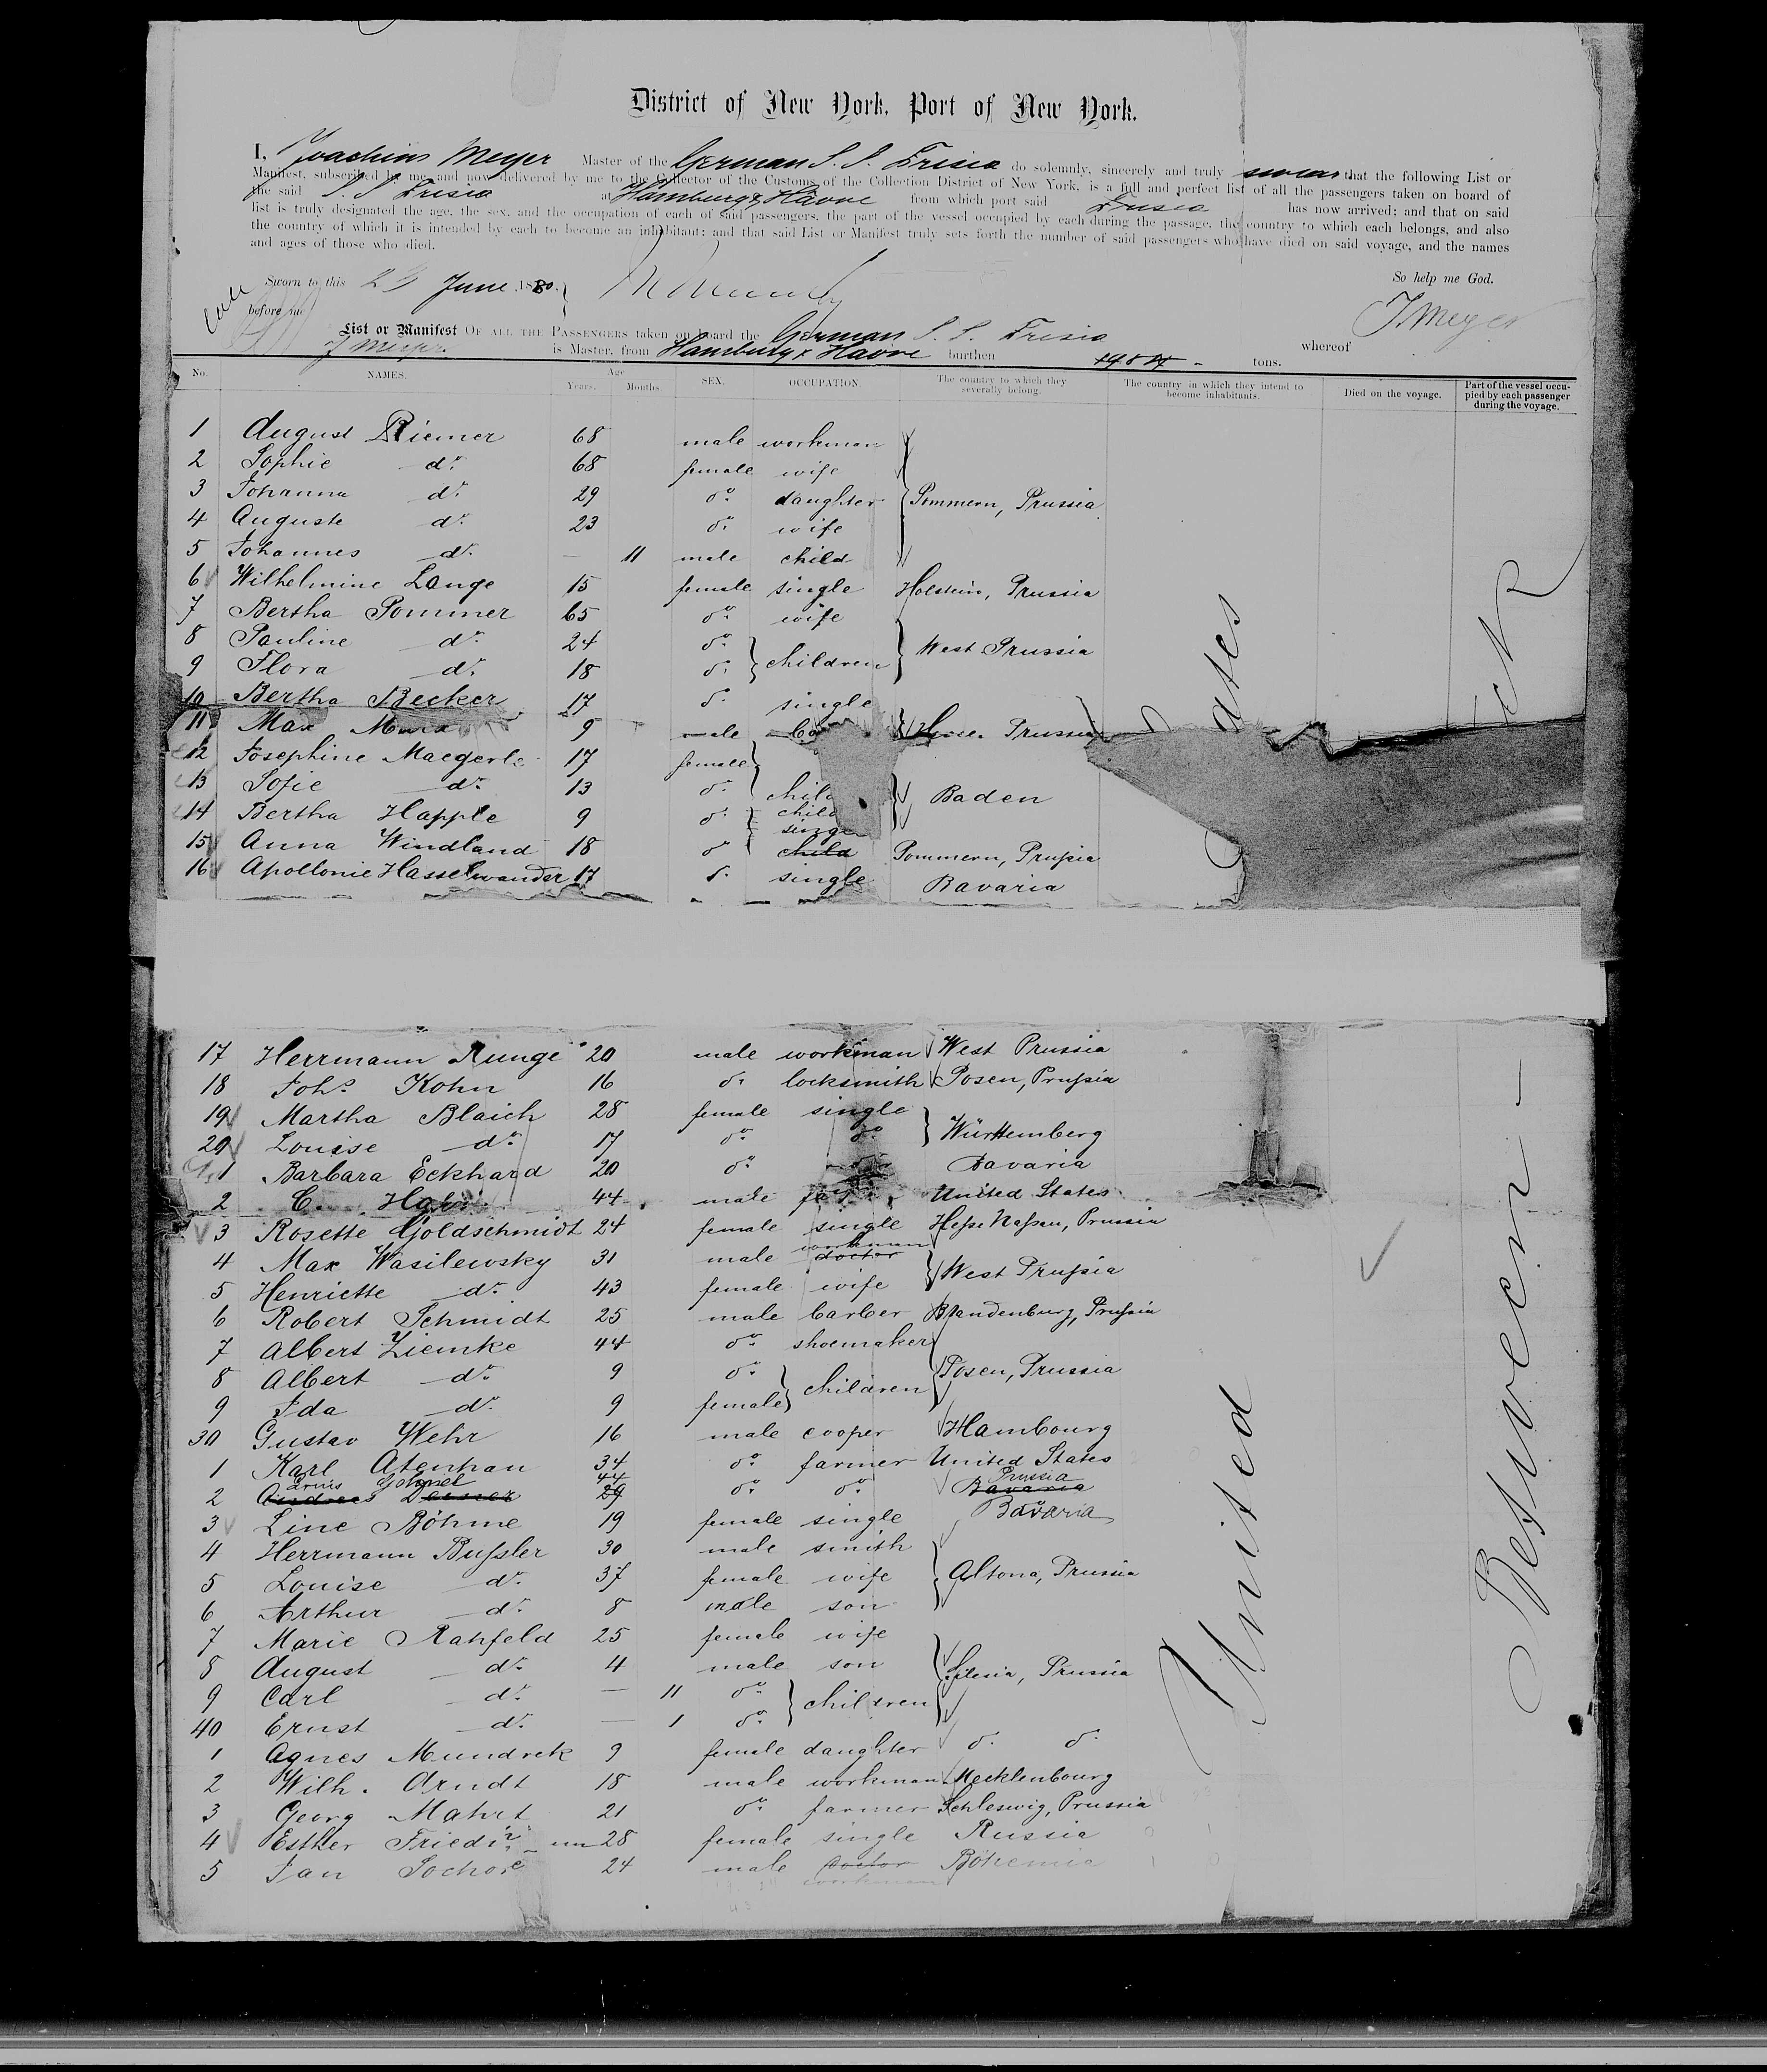 District of New York, Port of New York.
I, Joachim Meyer Master of the German S. S. Frisia do solemnly, sincerely and truly swear that the following List or
Manifest, subscribed by me and now delivered by me to the Collector of the Customs of the Collection District of New York, is a full and perfect list of all the passengers taken on board of
the said S S Frisia at Hamburg & Havre from which port said Frisia has now arrived; and that on said
list is truly designated the age, the sex, and the occupation of each of said passengers, the part of the vessel occupied by each during the passage, the country to which each belongs, and also
the country of which it is intended by each to become an inhabitant; and that said List or Manifest truly sets forth the number of said passengers who have died on said voyage, and the names
and ages of those who died.
So help me God.
Sworn to this 23 June 1880.
before me
J. Meyer
List or Manifest OF ALL THE PASSENGERS taken on board the German S. S. Frisia whereof
J Meyer. is Master, from Hamburg & Havre burthen tons.
No. NAMES. Age Years. Months. SEX. OCCUPATION. The country to which they severally belong. The country in which they intend to become inhabitants. Died on the voyage. Part of the vessel occupied by each passenger during the voyage.
1 August Riemer 68 male workman
2 Sophie do. 68 female wife
3 Johanna do. 29 do. daughter Pommern, Prussia
4 Auguste do. 23 do. wife
5 Johannes do. — 11 male child
6 Wilhelmine Lange 15 female single Holstein, Prussia
7 Bertha Pommer 65 do. wife
8 Pauline do. 24 do. children West Prussia
9 Flora do. 18 do.
10 Bertha Becker 17 do. single
11 Max 9 male Prussia
12 Josephine Maegerle 17 female
13 Sofie do. 13 do. Baden
14 Bertha Happle 9 do. child
single
15 Anna Windland 18 do child Pommern, Prussia
16 Apollonie Hasselwander 17 do. single Bavaria
17 Herrmann Runge 20 male workman West Prussia
18 Johs Kohn 16 do. locksmith Posen, Prussia
19 Martha Blaich 28 female single
20 Louise do. 17 do. do. Württemberg
1 Barbara Eckhard 20 do. Bavaria
2 C. 44 male United States
3 Rosette Goldschmidt 24 female single Hesse Nassau, Prussia
workman
4 Max Wasilewsky 31 male doctor
5 Henriette do. 43 female wife West Prussia
6 Robert Schmidt 25 male barber Brandenburg, Prussia
7 Albert Ziemke 44 do. shoemaker
8 Albert do. 9 do. children Posen, Prussia
9 Ida do. 9 female
30 Gustav Wehr 16 male cooper Hambourg
1 Karl Atenhan 34 do. farmer United States
Louis 44 Prussia
2 Andreas 29 do. do. Bavaria
3 Line Böhme 19 female single Bavaria
4 Herrmann Bussler 30 male smith
5 Louise do. 37 female wife Altona, Prussia
6 Arthur do. 8 male son
7 Marie Rahfeld 25 female wife
8 August do. 4 male son Silesia, Prussia
9 Carl do. — 11 do. children
40 Ernst do. — 1 do.
1 Agnes Mundrek 9 female daughter do. do.
2 Wilh. Arndt 18 male workman Mecklenbourg
3 Georg Mahrt 21 do. farmer Schleswig, Prussia
4 Esther 28 female single Russia
5 Jan Sochore 24 male doctor Böhemia
workman
United
Between